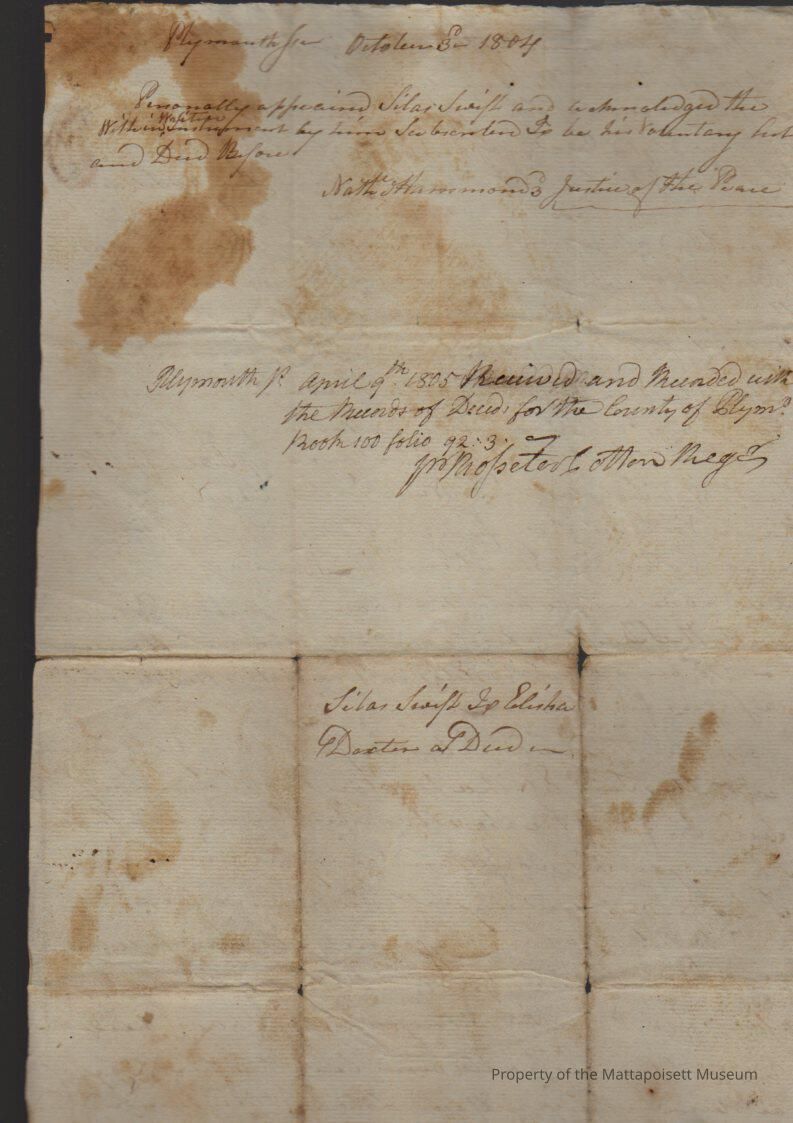 Plymouth ss October 3d 1804
Personally appeared Silas Swift and acknoledged the
Within Writen Instrument by him Subscribed To be his Voluntary act
and Deed Before
Nathl Hammond Justice of the Peace
Plymouth ss April 9th 1805 Received and Recorded with
the Records of Deeds for the County of Plymo
Book 100 folio 92:3
pr Rosseter Cotton Regr
Silas Swift To Elisha
Dexter a Deed
Property of the Mattapoisett Museum